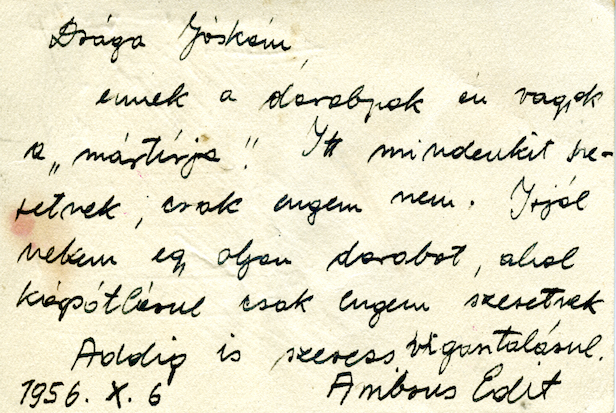 Drága Jóskám,
ennek a darabnak én vagyok
a „mártírja"! Itt mindenkit sze-
retnek, csak engem nem. Írjál
nekem egy olyan darabot, ahol
kárpótlásul csak engem szeretnek
Addig is szeress vigasztalásul.
1956. X. 6 Ambrus Edit